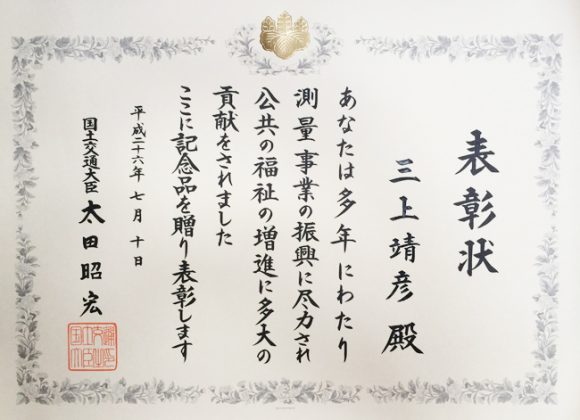 表彰状
三上靖彦 殿
あなたは多年にわたり
測量事業の振興に尽力され
公共の福祉の増進に多大の
貢献をされました
ここに記念品を贈り表彰します
平成二十六年 七月 十日
国土交通大臣 太田昭宏